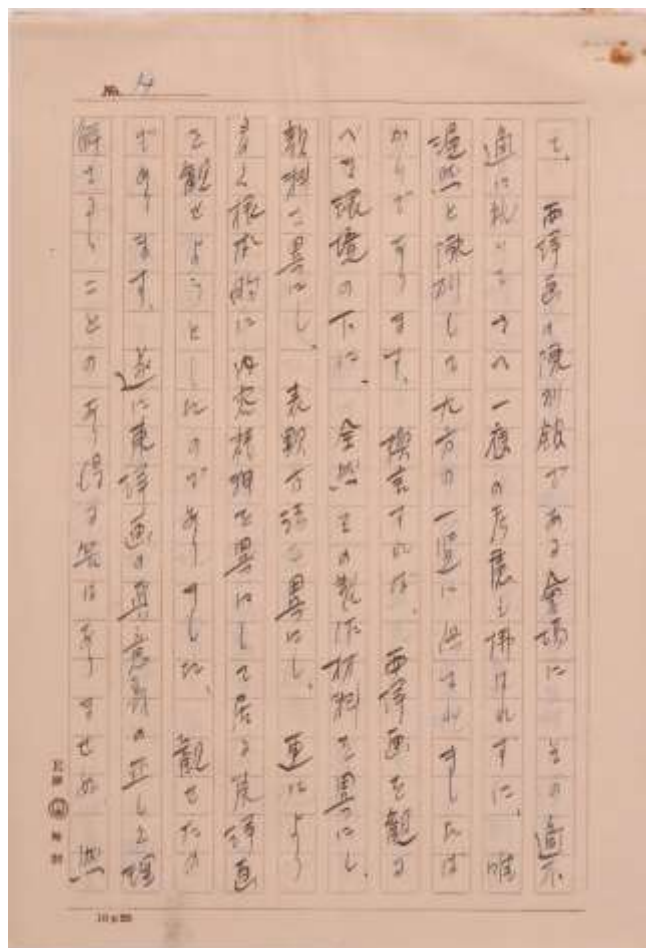 No. 4
て、西洋画の陳列館である会場に その適不
適に就いてさへ一応の考慮も拂はれずに、唯
漫然と陳列して大方の一覧に供されましたば
かりであります。換言すれば、西洋画を観る
べき環境の下に、全然その製作材料を異にし、
表現方法を異にし、更により
より根本的に内容精神を異にして居る東洋画
を観せようとしたのでありました。観せたの
であります。遂に東洋画の真意義の正しき理
解さるゝことのあり得る筈はありませぬ 然
10×20